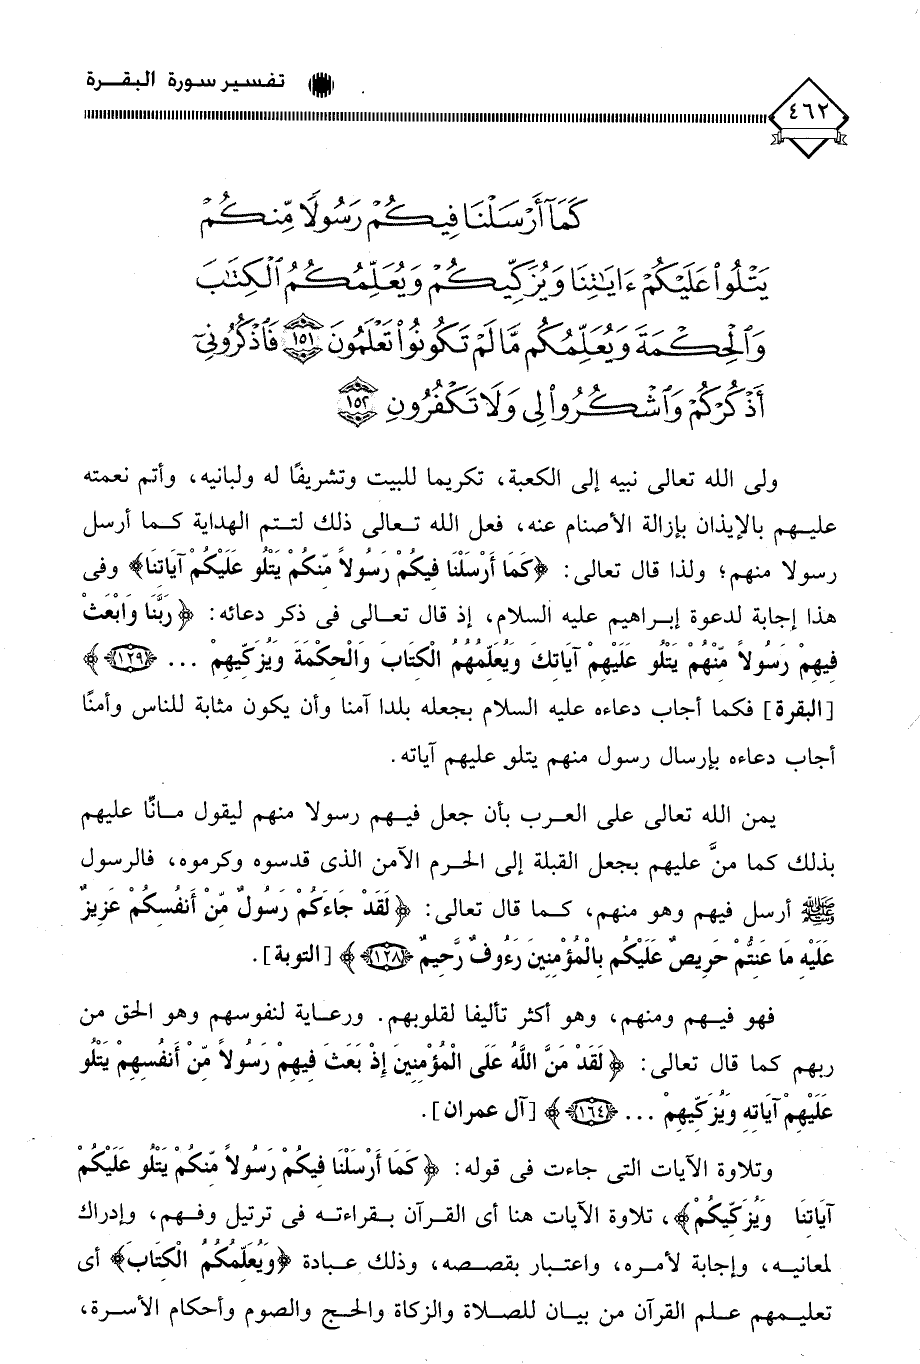 تفسير سورة البقرة
٤٦٢
كَمَآ أَرْسَلْنَا فِيكُمْ رَسُولًا مِّنكُمْ
يَتْلُوا۟ عَلَيْكُمْ ءَايَٰتِنَا وَيُزَكِّيكُمْ وَيُعَلِّمُكُمُ ٱلْكِتَٰبَ
وَٱلْحِكْمَةَ وَيُعَلِّمُكُم مَّا لَمْ تَكُونُوا۟ تَعْلَمُونَ ١٥١ فَٱذْكُرُونِىٓ
أَذْكُرْكُمْ وَٱشْكُرُوا۟ لِى وَلَا تَكْفُرُونِ ١٥٢
ولى الله تعالى نبيه إلى الكعبة، تكريما للبيت وتشريفًا له ولبانيه، وأتم نعمته
عليهم بالإيذان بإزالة الأصنام عنه، فعل الله تعالى ذلك لتتم الهداية كما أرسل
رسولا منهم؛ ولذا قال تعالى: ﴿كَمَا أَرْسَلْنَا فِيكُمْ رَسُولاً مِّنكُمْ يَتْلُو عَلَيْكُمْ آيَاتِنَا﴾ وفى
هذا إجابة لدعوة إبراهيم عليه السلام، إذ قال تعالى فى ذكر دعائه: ﴿رَبَّنَا وَابْعَثْ
فِيهِمْ رَسُولاً مِّنْهُمْ يَتْلُو عَلَيْهِمْ آيَاتِكَ وَيُعَلِّمُهُمُ الْكِتَابَ وَالْحِكْمَةَ وَيُزَكِّيهِمْ ... ١٢٩﴾
[البقرة] فكما أجاب دعاءه عليه السلام بجعله بلدا آمنا وأن يكون مثابة للناس وأمنًا
أجاب دعاءه بإرسال رسول منهم يتلو عليهم آياته.
يمن الله تعالى على العرب بأن جعل فيهم رسولا منهم ليقول مانًّا عليهم
بذلك كما منَّ عليهم بجعل القبلة إلى الحرم الآمن الذى قدسوه وكرموه، فالرسول
ﷺ أرسل فيهم وهو منهم، كما قال تعالى: ﴿لَقَدْ جَاءَكُمْ رَسُولٌ مِّنْ أَنفُسِكُمْ عَزِيزٌ
عَلَيْهِ مَا عَنِتُّمْ حَرِيصٌ عَلَيْكُم بِالْمُؤْمِنِينَ رَءُوفٌ رَّحِيمٌ ١٢٨﴾ [التوبة].
فهو فيهم ومنهم، وهو أكثر تأليفا لقلوبهم. ورعاية لنفوسهم وهو الحق من
ربهم كما قال تعالى: ﴿لَقَدْ مَنَّ اللَّهُ عَلَى الْمُؤْمِنِينَ إِذْ بَعَثَ فِيهِمْ رَسُولاً مِّنْ أَنفُسِهِمْ يَتْلُو
عَلَيْهِمْ آيَاتِهِ وَيُزَكِّيهِمْ ... ١٦٤﴾ [آل عمران].
وتلاوة الآيات التى جاءت فى قوله: ﴿كَمَا أَرْسَلْنَا فِيكُمْ رَسُولاً مِّنكُمْ يَتْلُو عَلَيْكُمْ
آيَاتِنَا وَيُزَكِّيكُمْ﴾، تلاوة الآيات هنا أى القرآن بقراءته فى ترتيل وفهم، وإدراك
لمعانيه، وإجابة لأمره، واعتبار بقصصه، وذلك عبادة ﴿وَيُعَلِّمُكُمُ الْكِتَابَ﴾ أى
تعليمهم علم القرآن من بيان للصلاة والزكاة والحج والصوم وأحكام الأسرة،